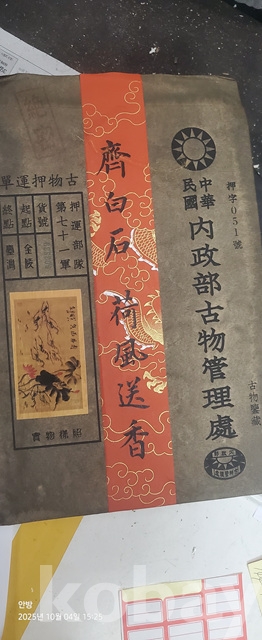 押字051號
中華
民國
內政部古物管理處
古物鑒藏
齊白石 荷風送香
古物押運單
押運部隊
第七十一軍
貨號
起點
終點
實物標照
안방
2025년 10월 04일 19:25
kobay